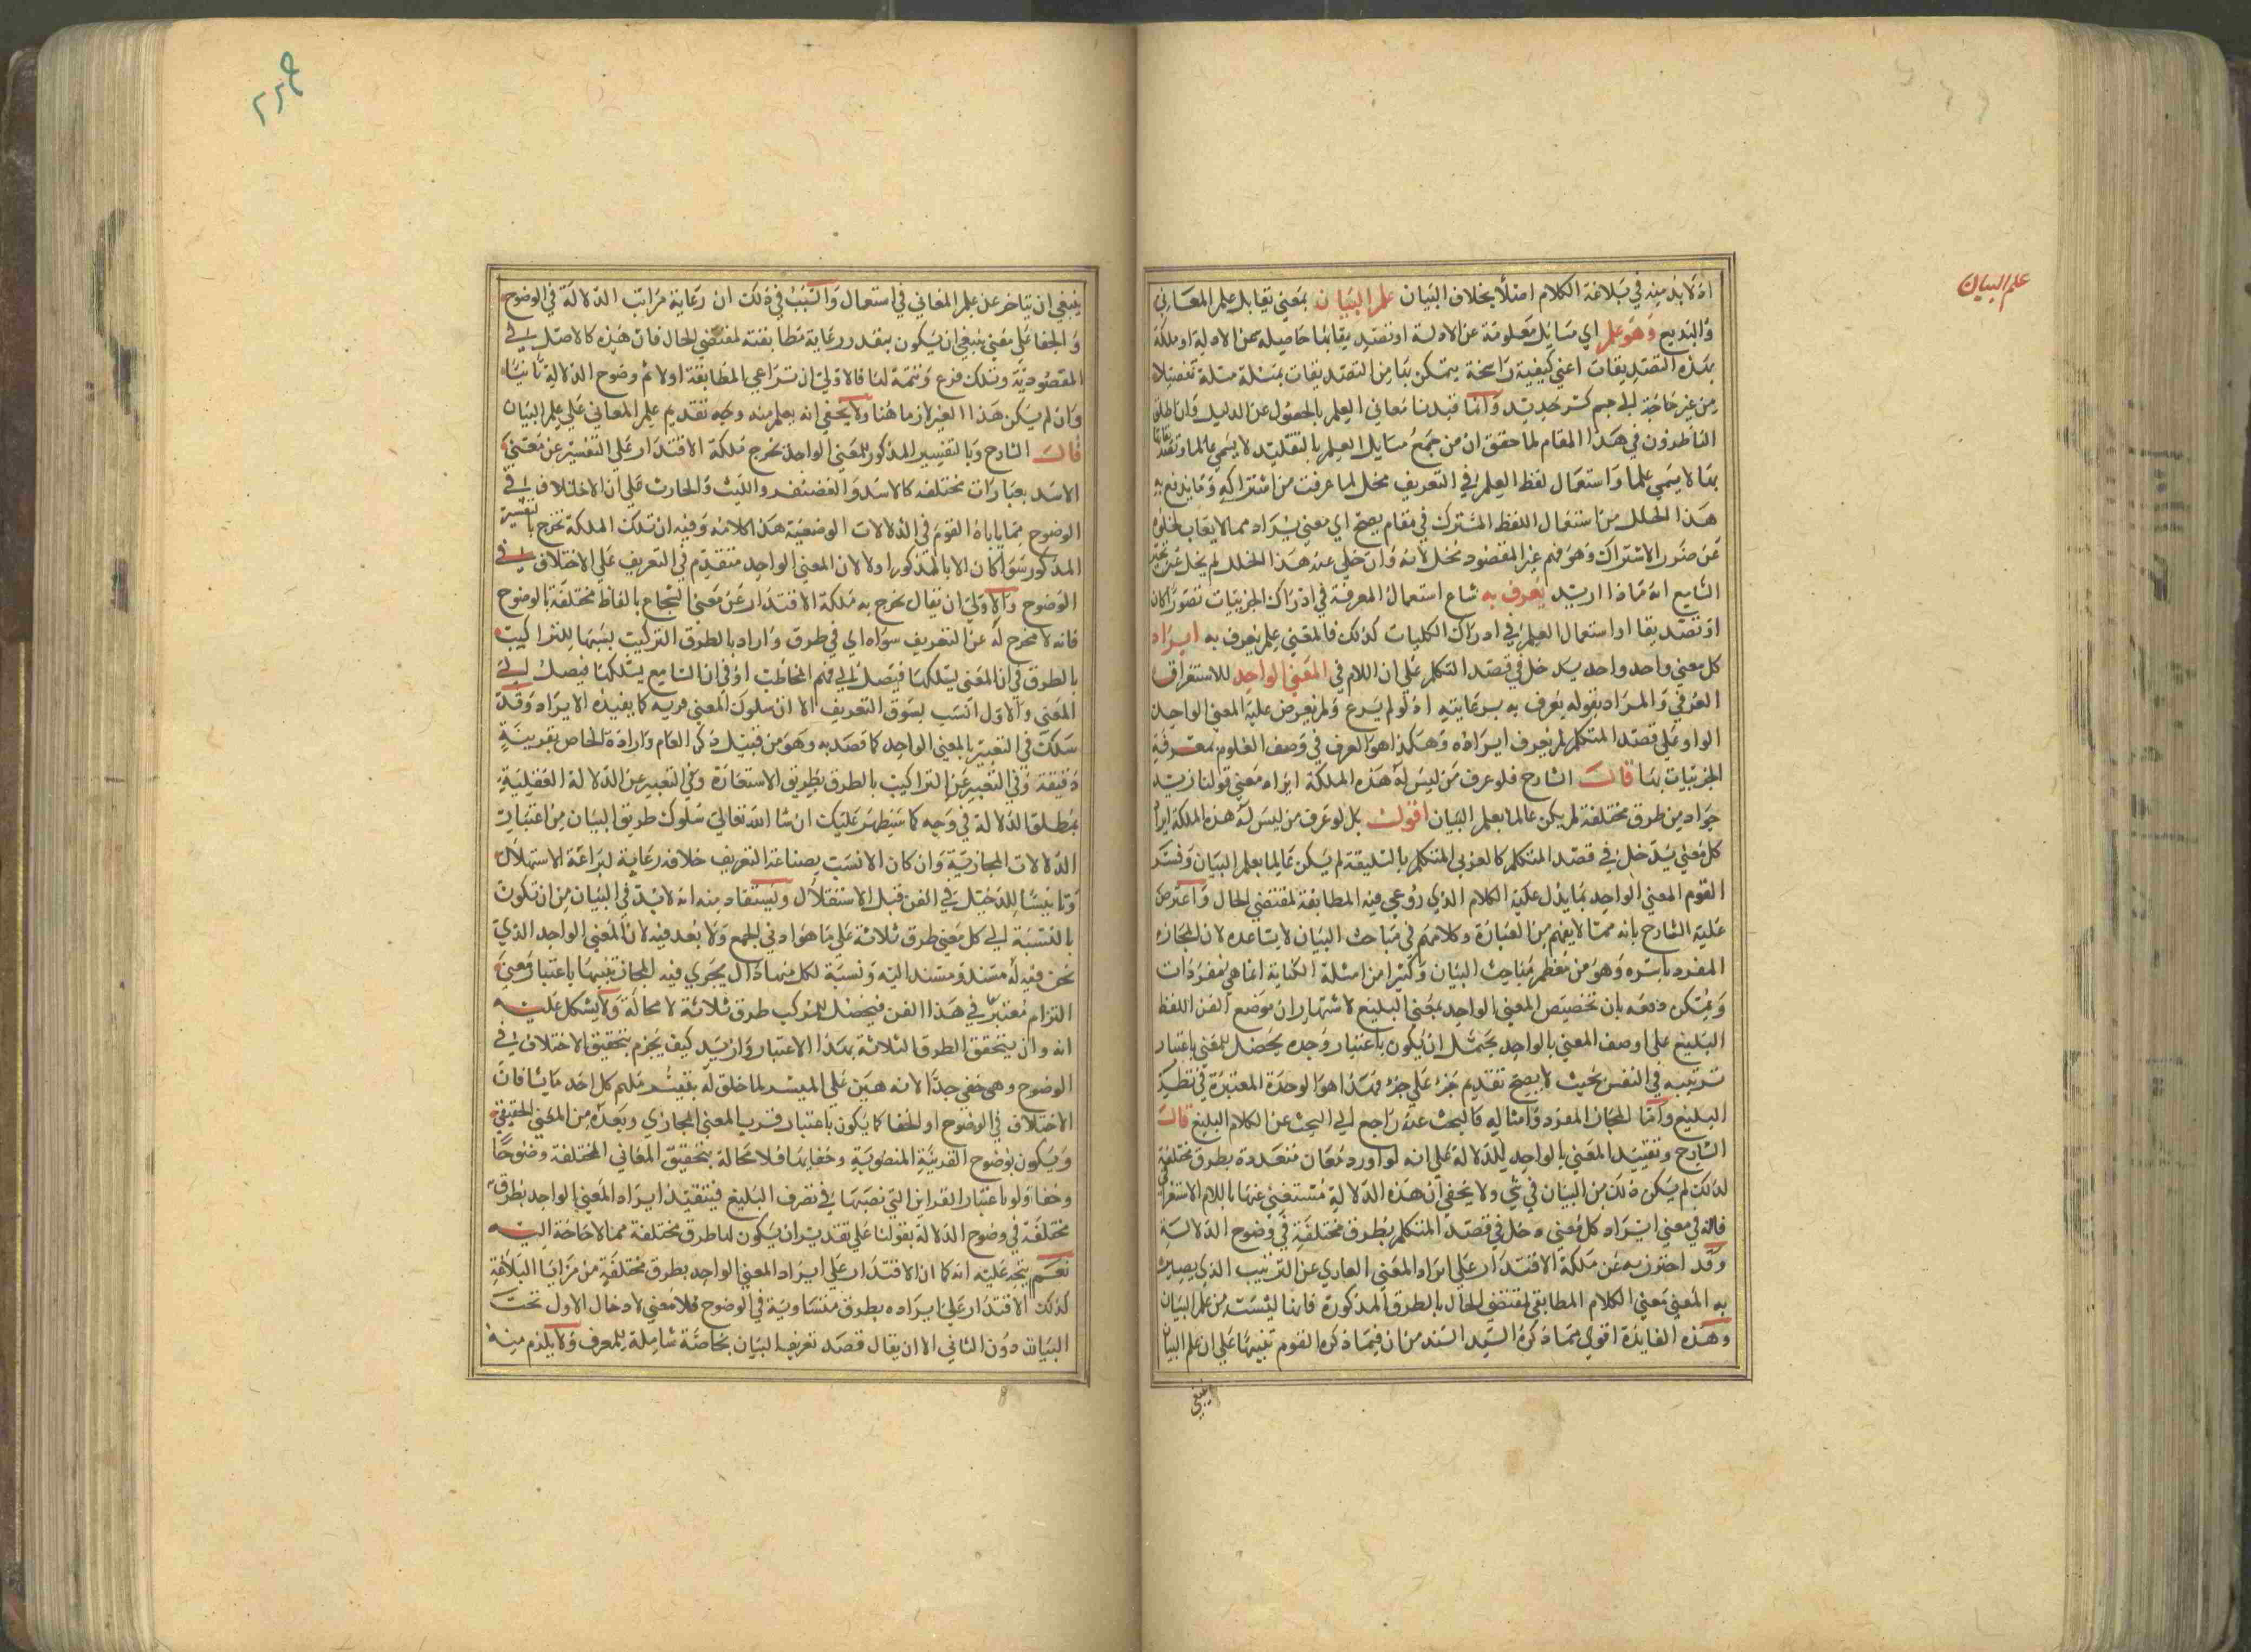 علم البيان
اذ لا بد منه في بلاغة الكلام اصلا بخلاف البيان علم البيان بمعني يقابل علم المعاني
والبديع وهو علم اي مسايل معلومة عن الادلة او تصديقا بها حاصلة عن الادلة او ملكة
بهذه التصديقات اعني كيفية راسخة يتمكن بها من التصديقات بمسئلة مسئلة تفصيلا
من غير حاجة الي جسم كسر حديد وانما قيدنا معاني العلم بالحصول عن الدليل وان اطلق
الناظرون في هذا المقام لما حقق ان من جمع مسايل العلم بالتقليد لا يسمي عالما وتقليده
بها لا يسمي علما واستعمال لفظ العلم في التعريف مخل لما عرفت من اشتراكه وما يدفع به
هذا الخلل من استعمال اللفظ المشترك في مقام يصح اي معني يراد مما لا يعاب لخلوه
عن ضرر الاشتراك وهو فهم غير المقصود مخل لانه وان خلي عنه هذا الخلل لم يخل عن تحير
السامع انه ماذا اريد يعرف به شاع استعمال المعرفة في ادراك الجزييات تصورا كان
او تصديقا او استعمال العلم في ادراك الكليات كذلك فالمعني علم يعرف به ايراد
كل معني واحد واحد يدخل في قصد المتكلم علي ان اللام في المعني الواحد للاستغراق
العرفي والمراد بقوله يعرف به برعايته اذ لو لم يرع ولم يعرض عليه المعني الواحد
الوارد علي قصد المتكلم لم يعرف ايراده وهكذا هو العرف في وصف العلوم بمعرفة
الجزييات بها قال الشارح فلو عرف من ليس له هذه الملكة ايراد معني قولنا زيد
جواد من طرق مختلفة لم يكن عالما بعلم البيان اقول بل لو عرف من ليس له هذه الملكة ايراد
كل معني يدخل في قصد المتكلم كالعربي المتكلم بالسليقة لم يكن عالما بعلم البيان وفسر
القوم المعني الواحد بما يدل عليه الكلام الذي روعي فيه المطابقة لمقتضي الحال واعترض
عليه الشارح بانه مما لا يفهم من العبارة وكلامهم في مباحث البيان لا يساعده لان المجاز
المفرد باسره وهو من معظم مباحث البيان وكثيرا من امثلة الكناية انما هي بمفردات
ويمكن دفعه بان تخصيص المعني الواحد بمعني البليغ لاشتهار ان موضع الفن اللفظ
البليغ علي ان وصف المعني بالواحد يحتمل ان يكون باعتبار وحدة يحصل للمعني باعتبار
ترتيبه في النفس بحيث لا يصح تقديم جزء علي جزء فهذا هو الوحدة المعتبرة في نظر
البليغ واما المجاز المفرد وامثاله فالبحث عنه راجع الي البحث عن الكلام البليغ قال
الشارح وتقييد المعني بالواحد للدلالة علي انه لو اورد معان متعددة بطرق مختلفة
لذلك لم يكن ذلك من البيان في شي ولا يخفي ان هذه الدلالة مستغني عنها باللام الاستغراق
فانه في معني ايراد كل معني دخل في قصد المتكلم بطرق مختلفة في وضوح الدلالة
وقد احترز به عن ملكة الاقتدار علي ايراد المعني العاري عن الترتيب الذي يصير
به المعني معني الكلام المطابق لمقتضي الحال بالطرق المذكورة فانها ليست من علم البيان
وهذه الفايدة اقوي مما ذكره السيد السند من ان فيما ذكره القوم تنبيها علي ان علم البيان
ينبغي
ينبغي ان يتاخر عن علم المعاني في استعمال والسبب في ذلك ان رعاية مراتب الدلالة في الوضوح
والخفا علي معني ينبغي ان يكون بعد رعاية مطابقته لمقتضي الحال فان هذه كالاصل في
المقصودية وتلك فرع وتتمة لها فالاولي ان تراعي المطابقة اولا ثم وضوح الدلالة ثانيا
وان لم يكن هذا الغير لازما هنا ولا يخفي انه يعلم منه وجه تقديم علم المعاني علي علم البيان
قال الشارح وبالتفسير المذكور للمعني الواحد تخرج ملكة الاقتدار علي التفسير عن معني
الاسد بعبارات مختلفة كالاسد والغضنفر والليث والحارث علي ان الاختلاف في
الوضوح مما ياباه القوم في الدلالات الوضعية هذا كلامه وفيه ان تلك الملكة تخرج بالتفسير
المذكور سوا كان الا بالمذكور اولا لان المعني الواحد متقدم في التعريف علي الاختلاف في
الوضوح والاولي ان يقال تخرج به ملكة الاقتدار عن معني الشجاع بالفاظ مختلفة بالوضوح
فانه لا مخرج له عن التعريف سواه اي في طرق واراد بالطرق التركيب بشبهها للتراكيب
بالطرق في ان المعني يسلكها فيصل الي فهم المخاطب او في ان السامع يسلكها فيصل الي
المعني والاول انسب بسوق التعريف الا ان سلوك المعني مريه كما يفيده الايراد وقد
سلك في التعبير بالمعني الواحد كما قصد به وهو من قبيل ذكر العام وارادة الخاص بقرينة
دقيقة وفي التعبير عن التراكيب بالطرق بطريق الاستعارة وفي التعبير عن الدلالة العقلية
بمطلق الدلالة في وجه كما سيظهر عليك ان شا الله تعالي سلوك طريق البيان من اعتبار
الدلالات المجازية وان كان الانسب بصناعة التعريف خلافه رعاية لبراعة الاستهلال
وتانيسا للدخيل في الفن قبل الاستقلال ويستفاد منه انه لا بد في البيان من ان تكون
بالنسبة الي كل معني طرق ثلاثة علي ما هو ادني الجمع ولا بعد فيه لان المعني الواحد الذي
نحن فيه له مسند ومسند اليه ونسبة لكل منها دال يجري فيه المجاز تنبيها باعتبار معني
التزام معتبر في هذا الفن فيحصل للمركب طرق ثلاثة لا محالة ولا يشكل عليه
انه وان يتحقق الطرق الثلاثة بهذا الاعتبار واريد كيف يجزم بتحقيق الاختلاف في
الوضوح وهي خفي جدا لانه هين علي الميسر لما خلق له بتيسر ملهم كل احد ما يشا فان
الاختلاف في الوضوح او الخفا كما يكون باعتبار قرب المعني المجازي وبعده من المعني الحقيقي
ويكون لوضوح القرينة المنصوبة وخفايها فلا محالة بتحقيق المعاني المختلفة وضوحا
وخفا ولو باعتبار القراين التي نصبها في تصرف البليغ فيتقيد ايراد المعني الواحد بطرق
مختلفة في وضوح الدلالة بقولنا علي تقدير ان يكون لها طرق مختلفة مما لا حاجة اليه
نعم يتجه عليه انه كما ان الاقتدار علي ايراد المعني الواحد بطرق مختلفة من مزايا البلاغة
كذلك الاقتدار علي ايراده بطرق متساوية في الوضوح فلا معني لادخال الاول تحت
البيان دون الثاني الا ان يقال قصد تعريف البيان بخاصة شاملة للمعرف ولا يلزم منه